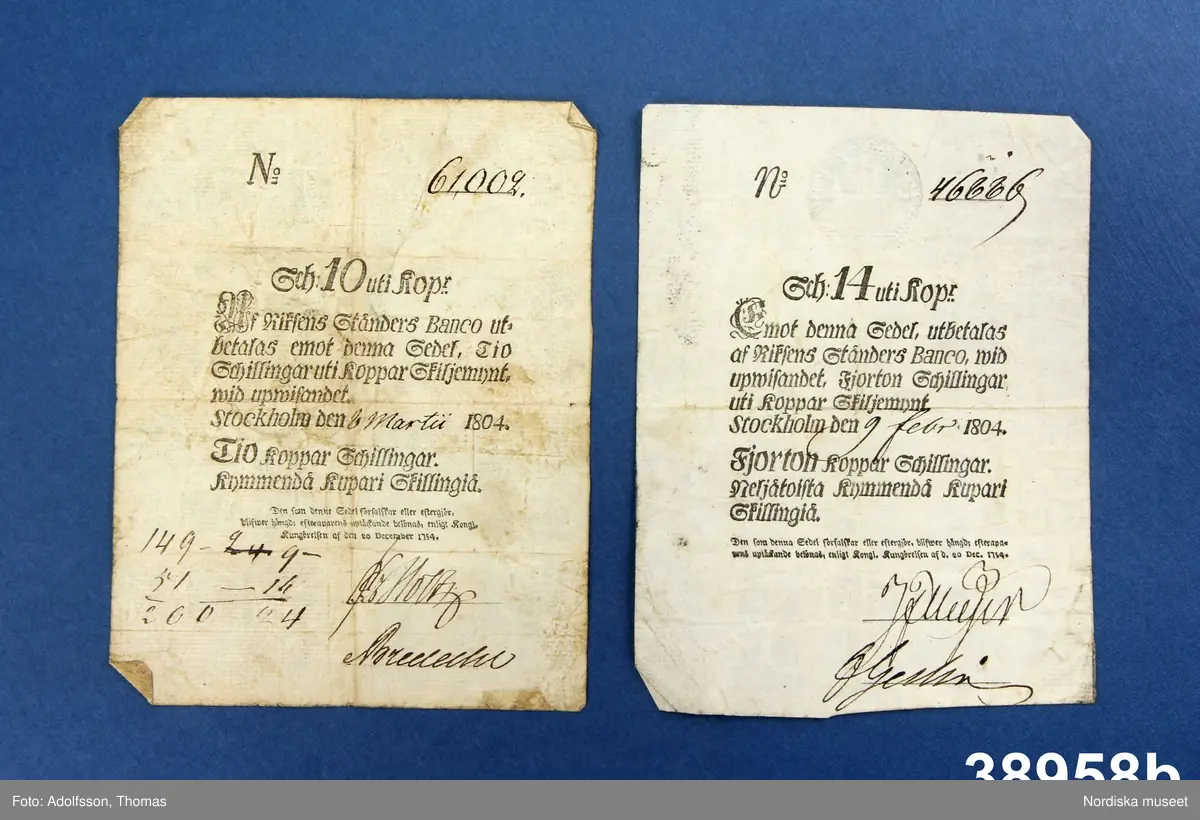 No
61,002.
Sch: 10 uti Kopr.
Af Riksens Ständers Banco ut-
betalas emot denna Sedel, Tio
Schillingar uti Koppar Skiljemynt,
wid upwisandet.
Stockholm den 6 Martii 1804.
Tio Koppar Schillingar.
Kymmendä Kupari Skillingiä.
Den som denne Sedel förfalskar eller eftergör,
blifwer hängd; efteraparens uptäckande belönas, enligt Kongl.
Kungörelsen af den 20 December 1754.
149 - 249 -
51 — 16
200 24
No
46666
Sch: 14 uti Kopr.
Emot denna Sedel, utbetalas
af Riksens Ständers Banco, wid
upwisandet, Fjorton Schillingar
uti Koppar Skiljemynt
Stockholm den 9 Febr. 1804.
Fjorton Koppar Schillingar.
Neljätoista Kymmendä Kupari
Skillingiä.
Den som denna Sedel förfalskar eller eftergör, blifwer hängd; efterapa-
rens uptäckande belönas, enligt Kongl. Kungörelsen af d. 20 Dec. 1754.
38958b
Foto: Adolfsson, Thomas
Nordiska museet